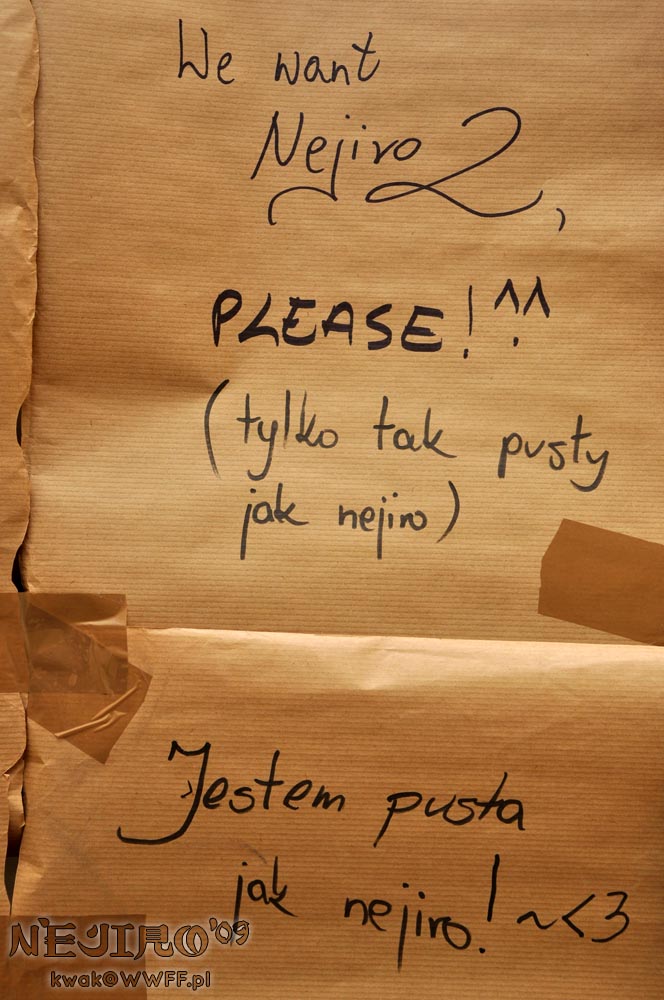 We want
Nejiro 2,
PLEASE! ^.^
(tylko tak pusty
jak nejiro)
Jestem pusta
jak nejiro! ~<3
NEJIRO'09
kwak@WWFF.pl